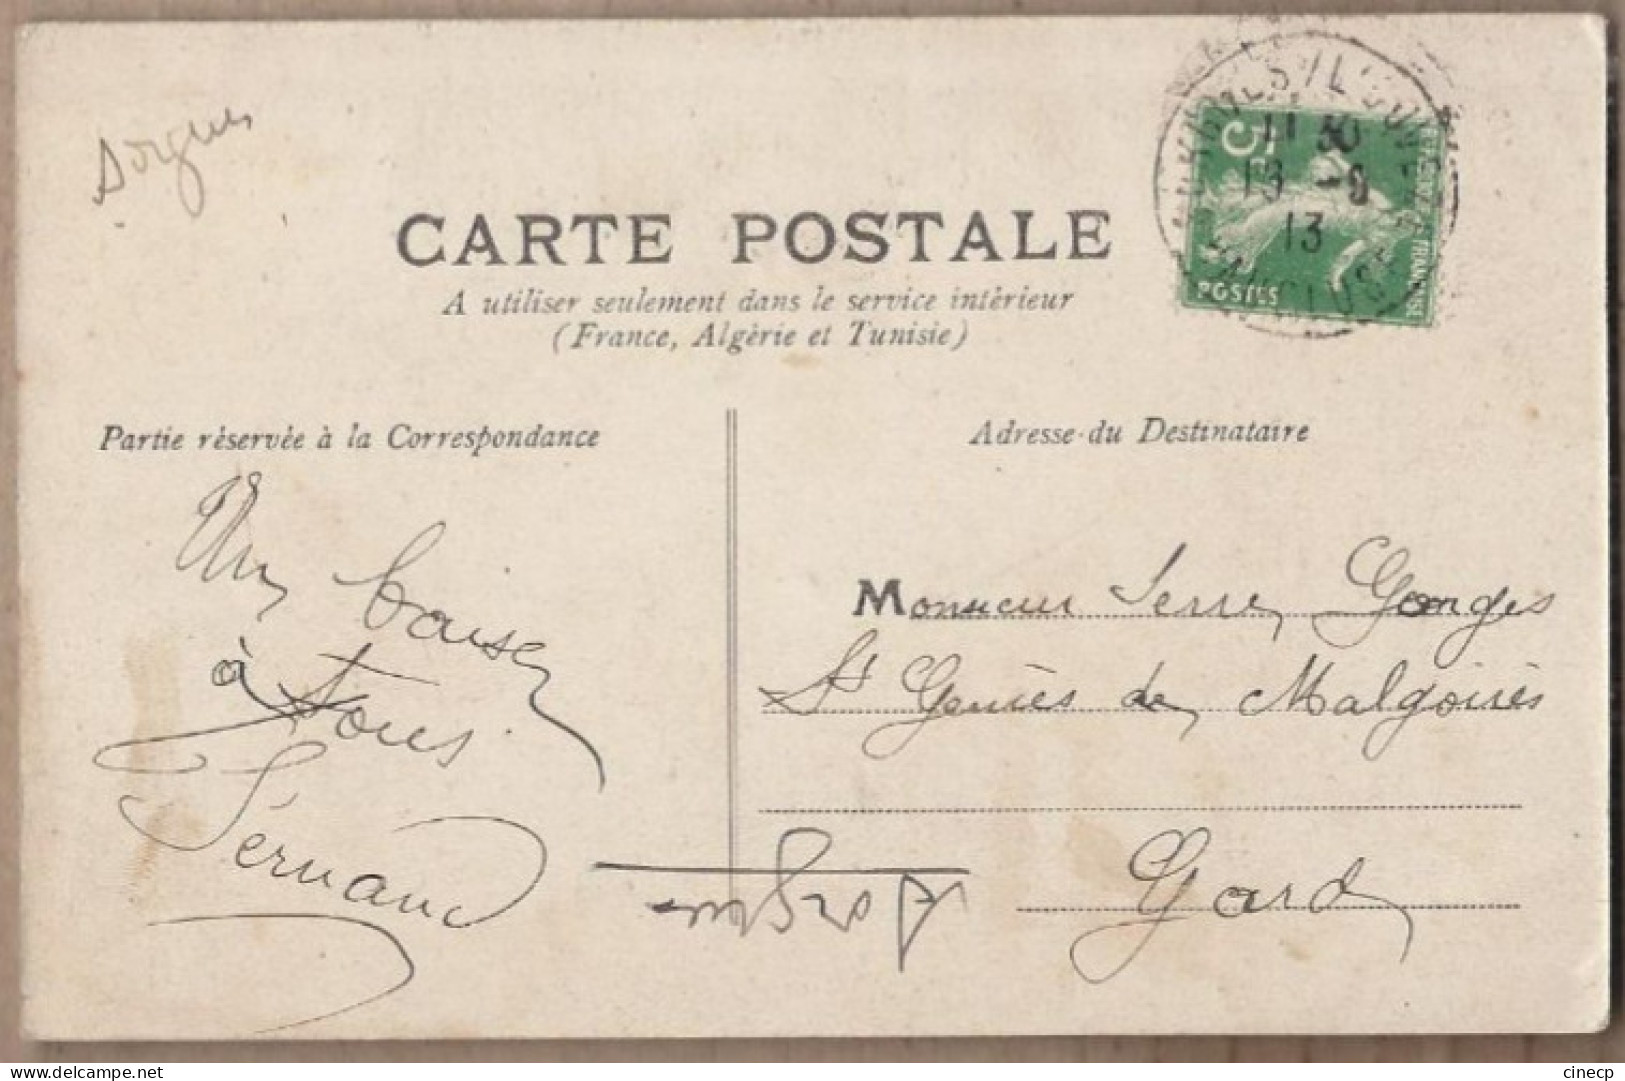 Sorgues
11 30
13 -9
13
5
POSTES
CARTE POSTALE
A utiliser seulement dans le service intérieur
(France, Algérie et Tunisie)
Partie réservée à la Correspondance
Adresse du Destinataire
Un baiser
à tous
Fernand
Monsieur Serre Georges
St Geniès de Malgoirès
Gard
Sorgues
delcampe.net
cinecp